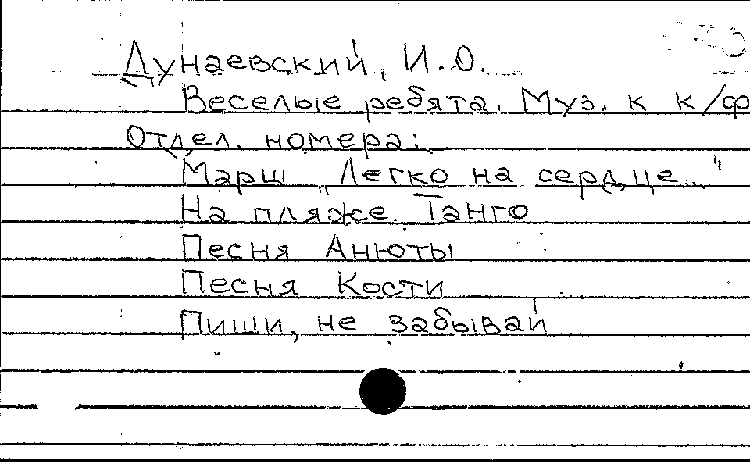 Дунаевский, И.О.
Веселые ребята. Муз. к к/ф
Отдел. номера:
Марш „Легко на сердце..."
На пляже. Танго
Песня Анюты
Песня Кости
Пиши, не забывай